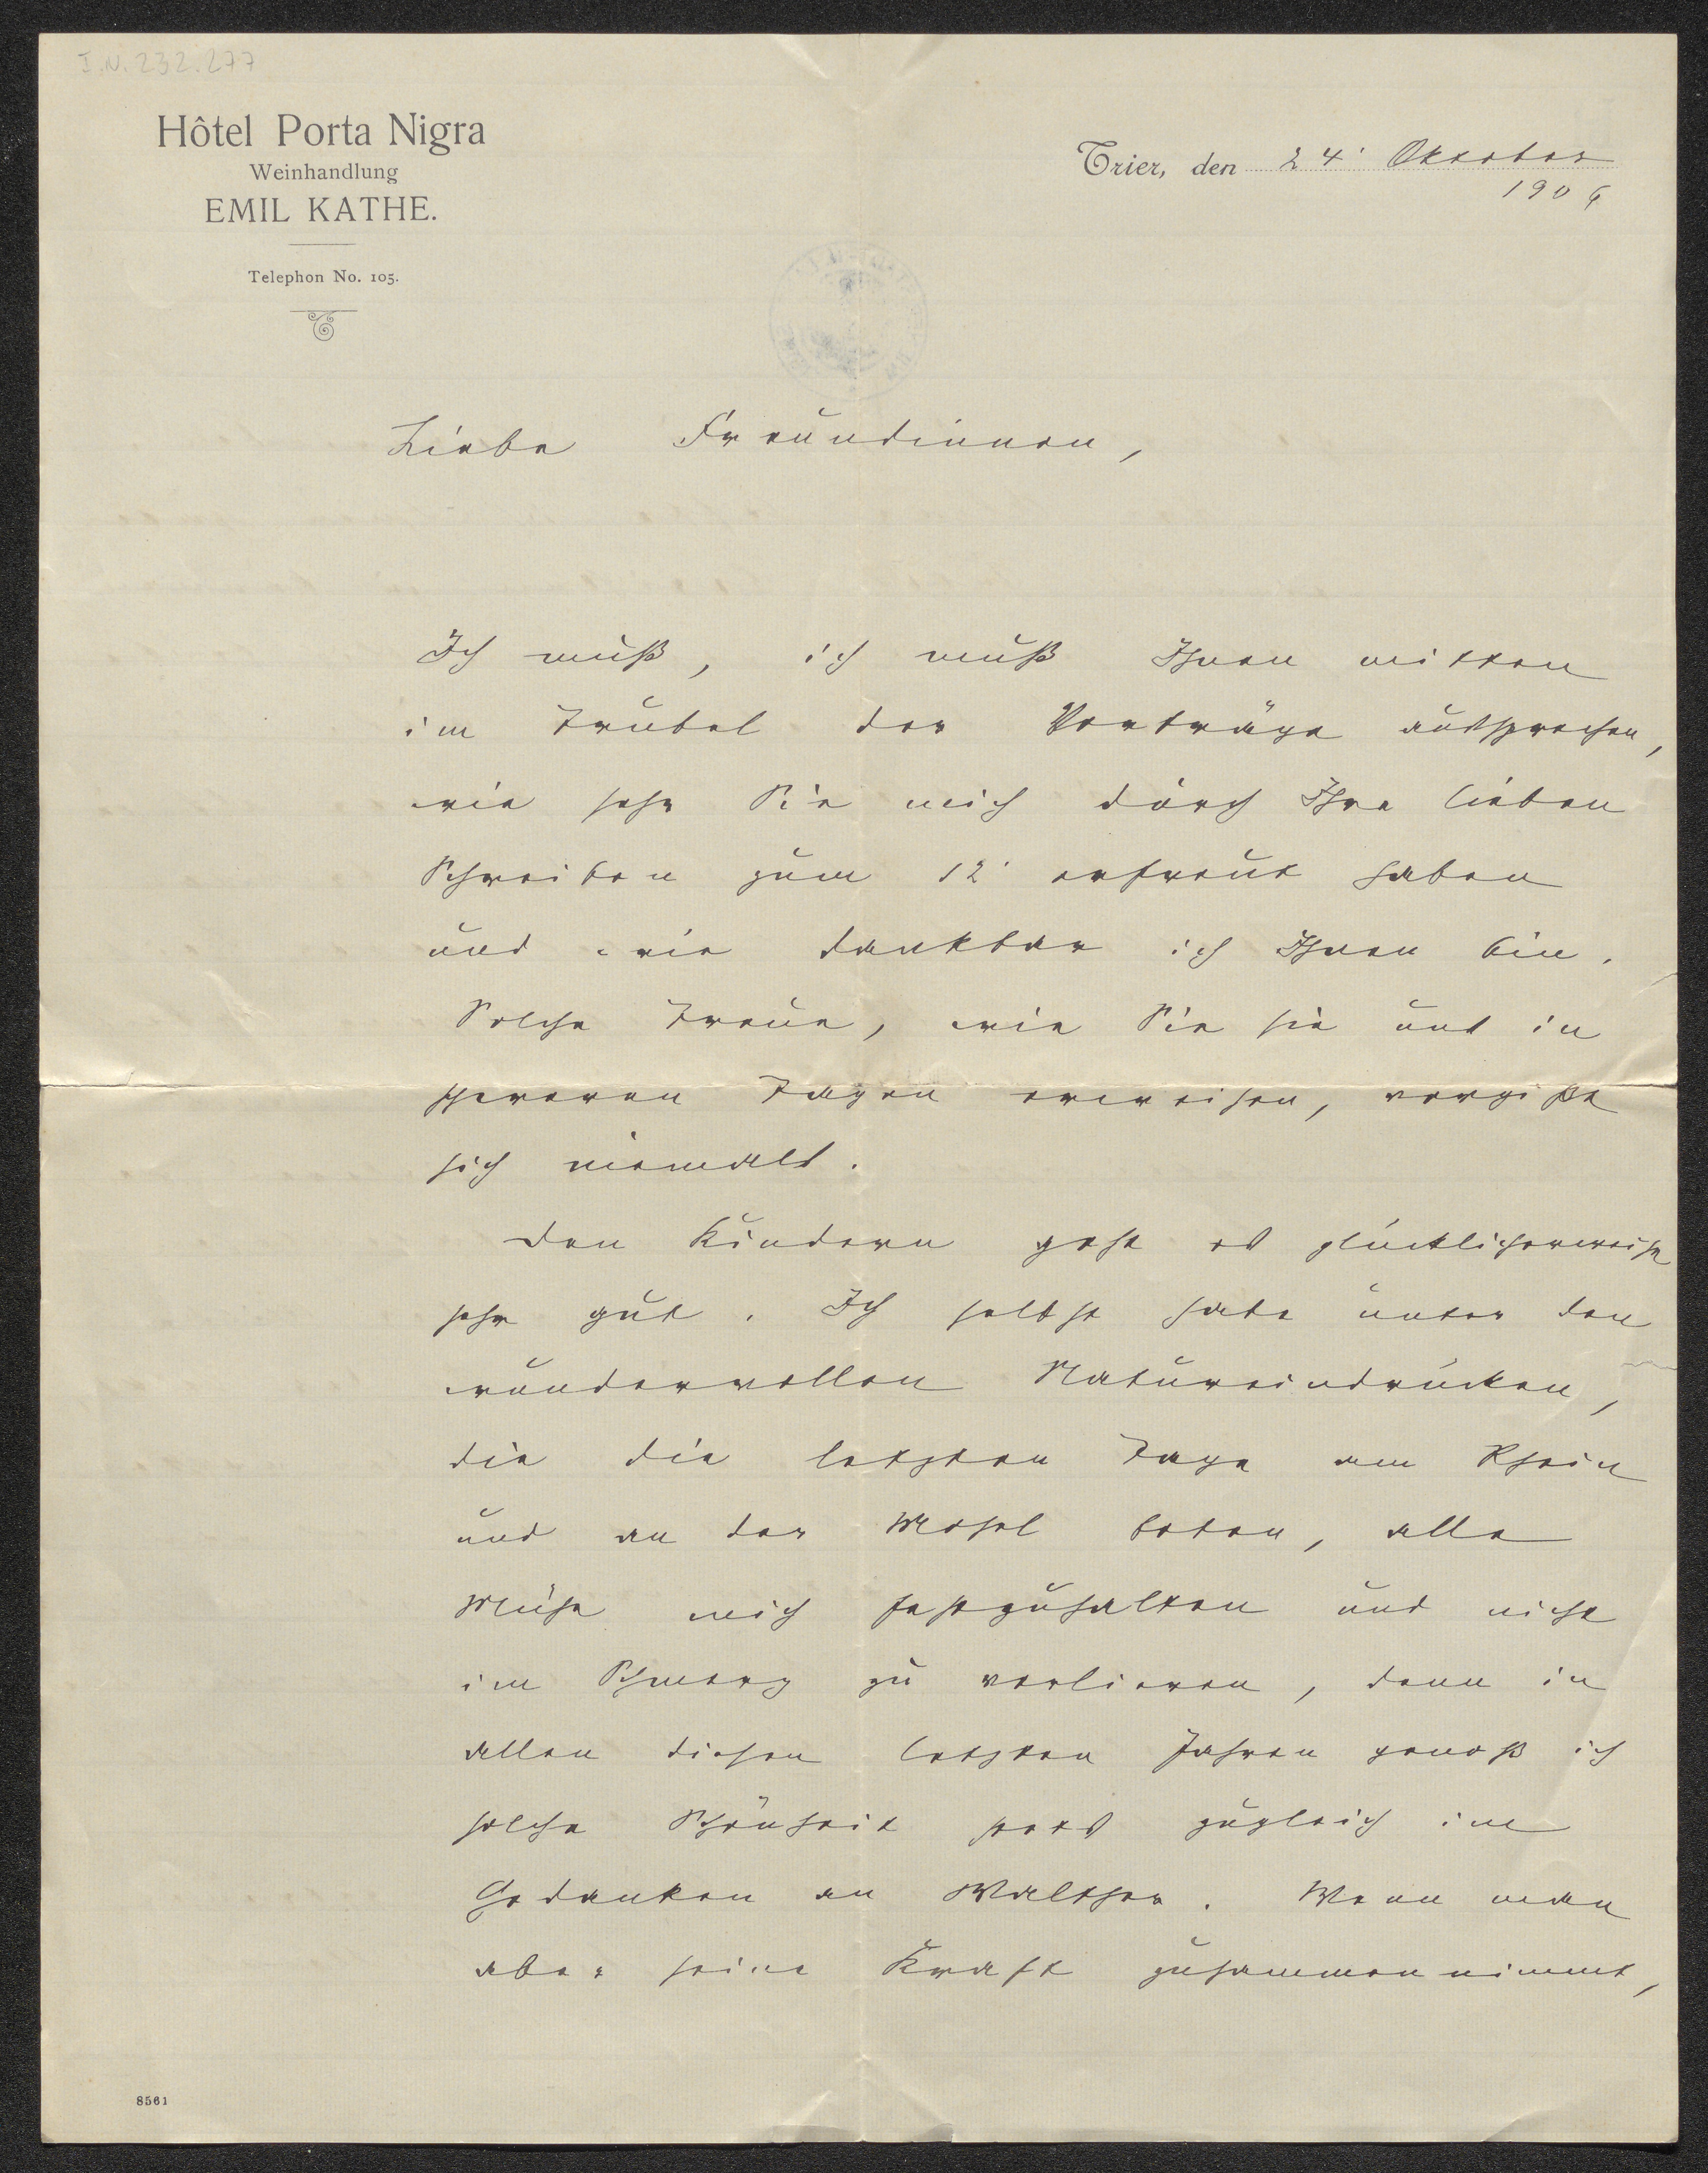 I.N. 232.277
Hôtel Porta Nigra
Weinhandlung
EMIL KATHE.
Telephon No. 105.
Trier, den 24. Oktober
1906
Liebe Freundinnen,
Ich muß, ich muß Ihnen mitten
im Trubel der Vorträge aussprechen,
wie sehr Sie mich durch Ihre lieben
Schreiben zum 12. erfreut haben
und wie dankbar ich Ihnen bin.
Solche Treue, wie Sie sie uns in
schweren Tagen erweisen, vergißt
sich niemals.
Den Kindern geht es glücklicherweise
sehr gut. Ich selbst habe unter den
wundervollen Natureindrücken,
die die letzten Tage am Rhein
und an der Mosel boten, alle
Mühe mich festzuhalten und nicht
im Schmerz zu verlieren, denn in
allen diesen letzten Jahren genoß ich
solche Schönheit stets zugleich im
Gedanken an Walther. Wenn man
aber seine Kraft zusammennimmt,
8561